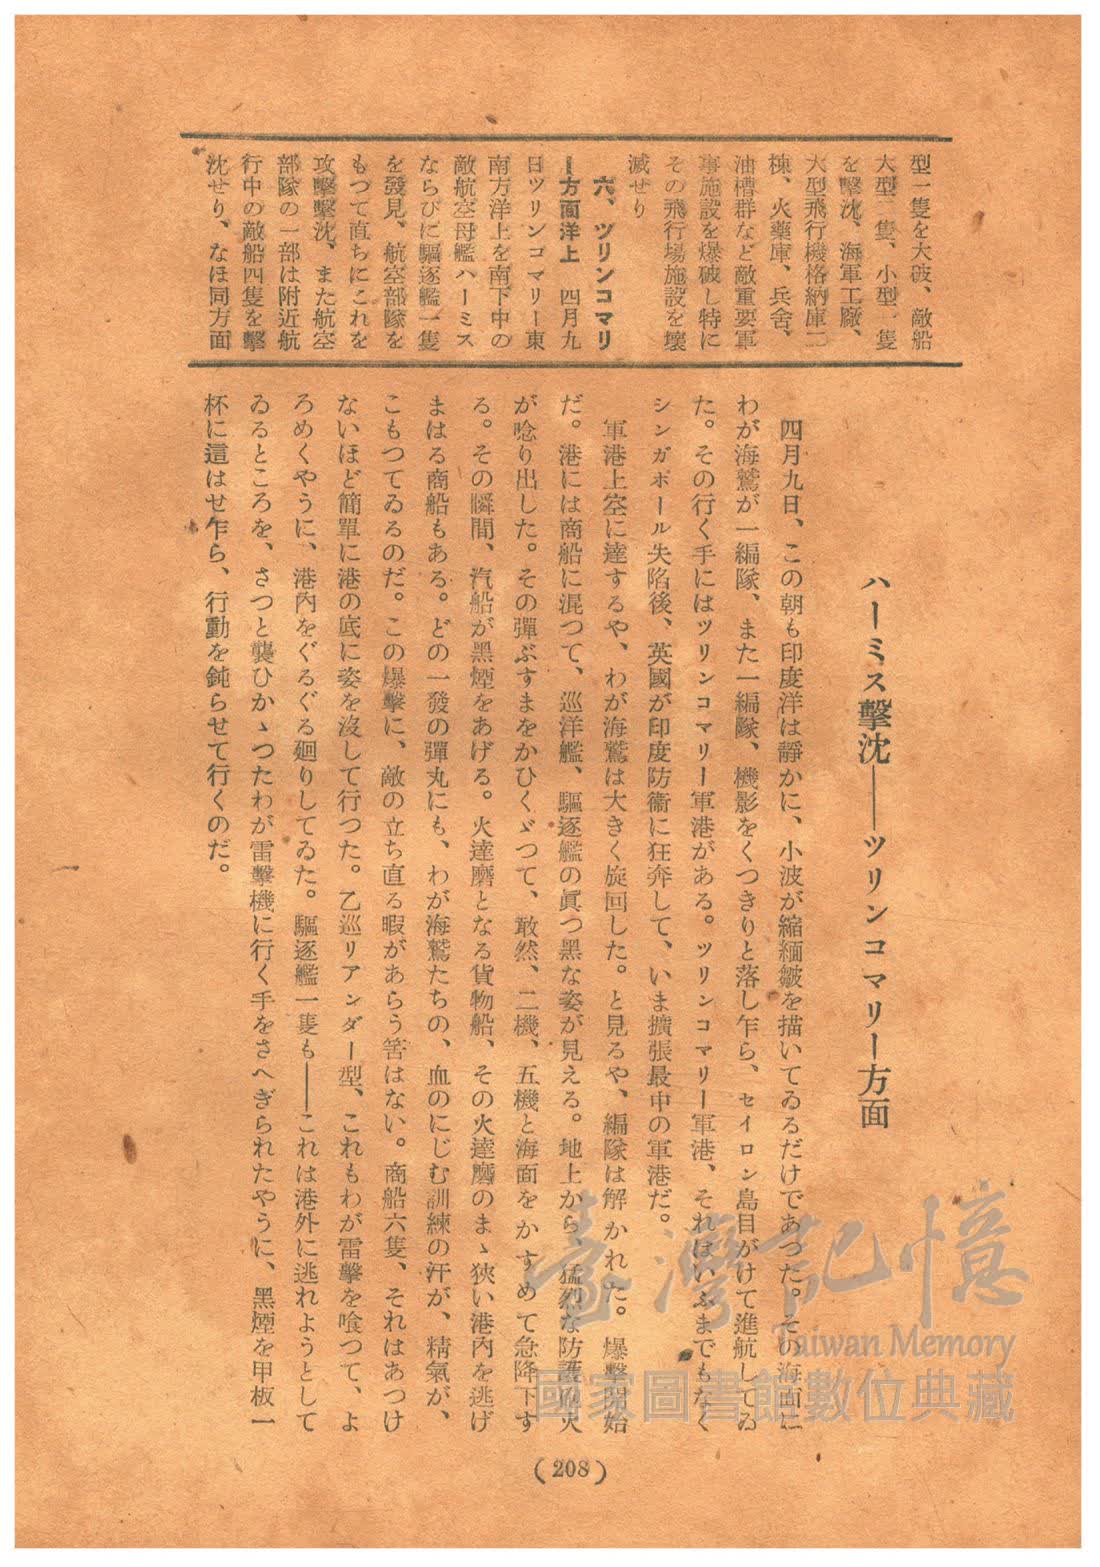 型一隻を大破、敵船
大型二隻、小型一隻
を擊沈、海軍工廠、
大型飛行機格納庫二
棟、火藥庫、兵舍、
油槽群など敵重要軍
事施設を爆破し特に
その飛行場施設を壞
滅せり
六、ツリンコマリ
ー方面洋上　四月九
日ツリンコマリー東
南方洋上を南下中の
敵航空母艦ハーミス
ならびに驅逐艦一隻
を發見、航空部隊を
もつて直ちにこれを
攻擊擊沈、また航空
部隊の一部は附近航
行中の敵船四隻を擊
沈せり、なほ同方面
ハーミス擊沈――ツリンコマリー方面
四月九日、この朝も印度洋は靜かに、小波が縮緬皺を描いてゐるだけであつた。その海面に
わが海鷲が一編隊、また一編隊、機影をくつきりと落し乍ら、セイロン島目がけて進航してゐ
た。その行く手にはツリンコマリー軍港がある。ツリンコマリー軍港、それはいふまでもなく
シンガポール失陷後、英國が印度防衞に狂奔して、いま擴張最中の軍港だ。
軍港上空に達するや、わが海鷲は大きく旋回した。と見るや、編隊は解かれた。爆擊開始
だ。港には商船に混つて、巡洋艦、驅逐艦の眞つ黑な姿が見える。地上から、猛烈な防護砲火
が唸り出した。その彈ぶすまをかひくゞつて、敢然、二機、五機と海面をかすめて急降下す
る。その瞬間、汽船が黑煙をあげる。火達磨となる貨物船、その火達磨のまゝ狹い港內を逃げ
まはる商船もある。どの一發の彈丸にも、わが海鷲たちの、血のにじむ訓練の汗が、精氣が、
こもつてゐるのだ。この爆擊に、敵の立ち直る暇があらう筈はない。商船六隻、それはあつけ
ないほど簡單に港の底に姿を沒して行つた。乙巡リアンダー型、これもわが雷擊を喰つて、よ
ろめくやうに、港內をぐるぐる廻りしてゐた。驅逐艦一隻も――これは港外に逃れようとして
ゐるところを、さつと襲ひかゝつたわが雷擊機に行く手をさへぎられたやうに、黑煙を甲板一
杯に這はせ乍ら、行動を鈍らせて行くのだ。
(208)
臺灣記憶
Taiwan Memory
國家圖書館數位典藏